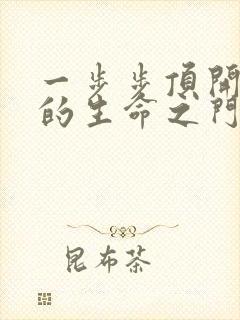 一步步頂開
的生命之門
昆布茶